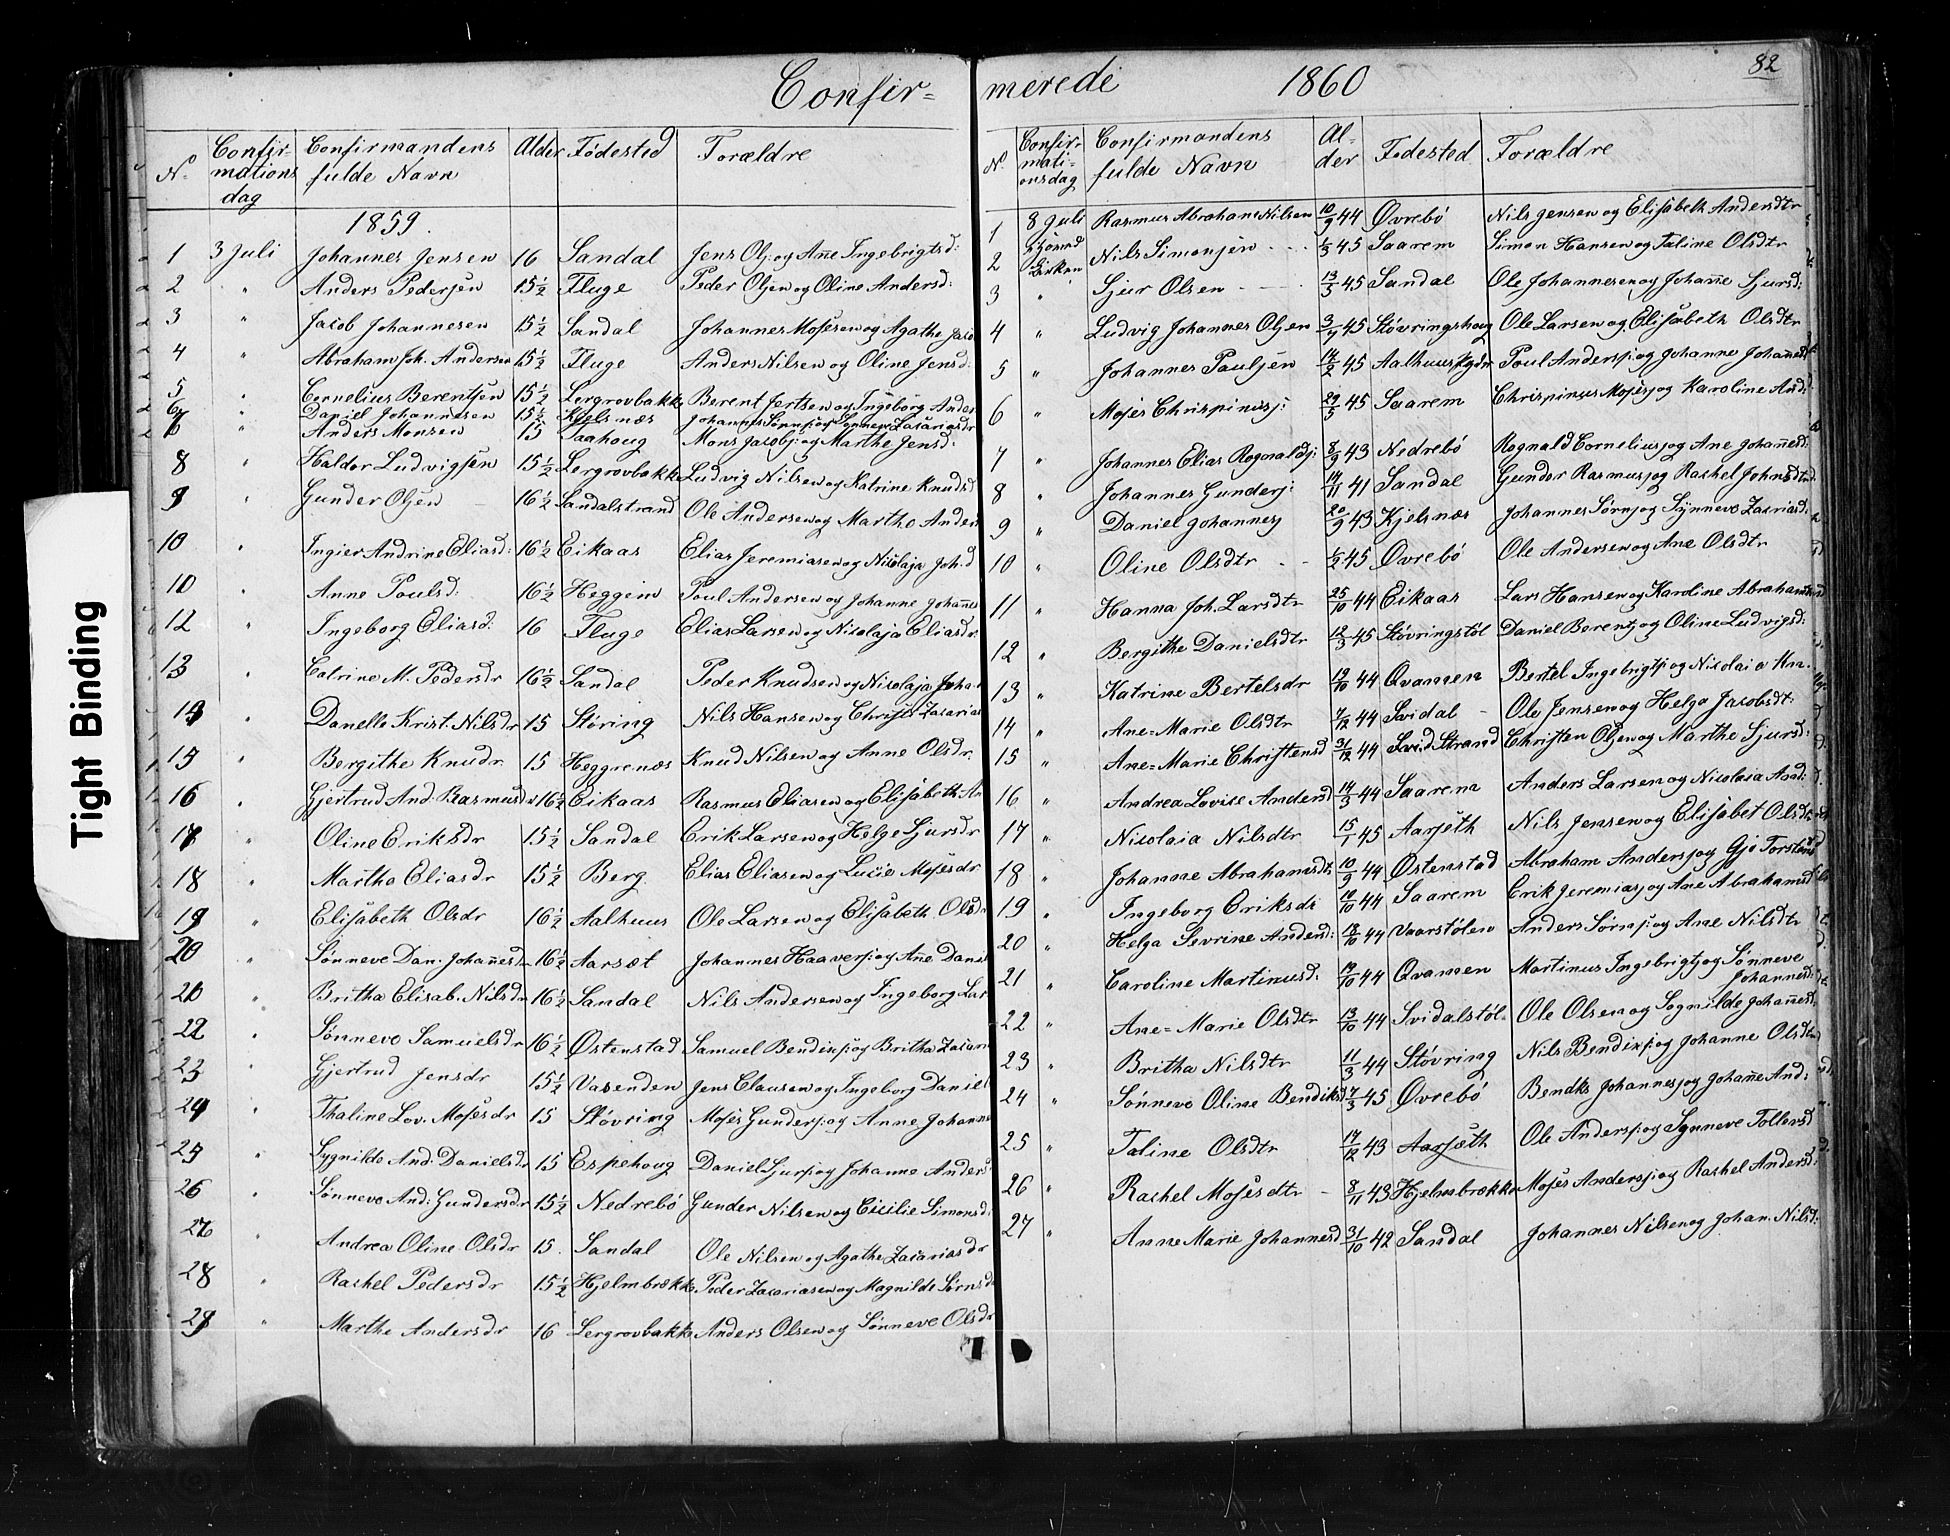 Confir= merede 1860 82
N. Confir-mations dag Confirmandens fulde Navn Alder Fødested Forældre
1859.
1 3 Juli Johannes Jensen 16 Sandal Jens Olsj: og Añe Ingebrigtsd:
2 " Anders Pedersen 15½ Fluge Peder Olsen og Oline Andersd:
3 " Jacob Johannesen 15½ Sandal Johannes Mosesen og Agathe Jaco
4 " Abraham Joh. Andersen 15½ Fluge Anders Nilsen og Oline Jensd:
5 " Cornelius Berentsen 15½ Lergrovbakke Berent Jertsen og Ingeborg Anders
6 " Daniel Johannesen 15½ Kjelsnæs Johannes Sørnsj og Sønneve Zakariasdr
7 " Anders Monsen 15 Saahoug Mons Jacobsj: og Marthe Jensd:
8 " Haldor Ludvigsen 15½ Lergrovbakke Ludvig Nilsen og Katrine Knudsd
9 " Gunder Olsen 16½ Sandalstrand Ole Andersen og Martha Anders
10 " Ingier Andrine Eliasd: 16½ Eikaas Elias Jeremiasen og Nikolaja Joh.d
10 " Anne Poulsd: 16½ Heggem Poul Andersen og Johanne Johañes
12 " Ingeborg Eliasd. 16 Fluge Elias Larsen og Nicolaja Eliasdr.
13 " Catrine M. Pedersdr 16½ Sandal Peder Knudsen og Nikolaja Joha
14 " Danelle Krist. Nilsdr 15 Støring Nils Hansen og Christi Zacarias
15 " Bergithe Knudr. 15 Heggrenæs Knud Nilsen og Anne Olsdr.
16 " Gjertrud And. Rasmusd 16½ Eikaas Rasmus Eliasen og Elisabeth An
17 " Oline Eriksdr 15½ Sandal Erik Larsen og Helge Sjursdr
18 " Martha Eliasdr 15½ Berg. Elias Eliasen og Lucie Mosesdr
19 " Elisabeth Olsdr 16½ Aalhuus Ole Larsen og Elisabeth Olsdr
20 " Sønneve Dan. Johañesdr 16½ Aarset Johannes Haaversj og Añe Danis
20 " Britha Elisab. Nilsdr 16½ Sandal Nils Andersen og Ingeborg Lar
22 " Sønneve Samuelsdr 16½ Østenstad Samuel Bendixsj og Britha Zacari
23 Gjertrud Jensdr 15½ Vasenden Jens Clausen og Ingeborg Daniel
24 " Thaline Lov. Mosesdr 15 Støvring Moses Gundersj: og Anne Johanne
25 " Sygnilde And. Danielsdr 15 Espehoug Daniel Sjursj og Johanne Anders
26 " Sønneve And: Gundersdr 15½ Nedrebö Gunder Nilsen og Cicilie Simonsd:
26 " Andrea Oline Olsdr 15. Sandal Ole Nilsen og Agathe Zacariasdr
28 " Rachel Pedersdr 15½ Hjelmbrække Peder Zacariasen og Magnilde Sørnsd
29 " Marthe Andersdr 16 Lergrovbakke Anders Olsen og Sønneve Olsdr
N. Confir-mati-onsdag Confirmandens fulde Navn Al-der Fødested Forældre
1 8 Juli Rasmus Abraham Nilsen 10/9 44 Øvrebö Nils Jensen og Elisabeth Andersdtr
2 Nils Simonsen 1/3 45 Saarem Simon Hansen og Taline Olsdtr
3 " Sjur Olsen 13/3 45 Sandal Ole Johannesen og Johañe Sjursd:
4 " Ludvig Johannes Olsen 3/4 45 Støvringshoug Ole Larsen og Elisabeth Olsdtr
5 " Johannes Paulsen 14/2 45 Aalhuus Poul Andersj: og Johanne Johañesd
6 " Moses Chrispinusj: 29/5 45 Saarem Chrispinus Mosesj og Karoline And:
7 " Johannes Elias Rognaldsj: 8/9 43 Nedrebö Rognald Corneliusj og Ane Johañesd:
8 " Johannes Gundersj: 14/11 41 Sandal Gunder Rasmusj og Rachel Johnsdtr
9 " Daniel Johannesj 20/9 43 Kjelsnæs Johannes Sørnsj og Synneve Zacriasd:
10 " Oline Olsdtr 1/2 45 Øvrebö Ole Andersen og Ane Olsdtr
11 " Hanna Joh. Larsdtr 25/10 44 Eikaas Lars Hansen og Karoline Abrahamsd
12 " Bergithe Danielsdtr 12/3 45 Støvringstöl Daniel Berentsj og Oline Ludvigsd:
13 " Katrine Bertelsdr 19/10 44 Qvamen Bertel Ingebrigtsj og Nicolaia Kn.
14 " Ane=Marie Olsdtr 7/12 44 Svidal Ole Jensen og Helga Jacobsdt:
15 " Ane=Marie Christensd 31/12 44 Svid Strand Christen Olsen og Marthe Sjursd:
16 " Andrea Lovise Andersd 14/3 44 Saarem Anders Larsen og Nicolaia And:
17 " Nicolaia Nilsdtr 15/1 45 Aarseth Nils Jensen og Elisabet Olsdtr
18 " Johanne Abrahamsdtr 10/9 44 Østenstad Abraham Andersj og Gjø Torstens
19 " Ingeborg Eriksdr 10/10 44 Saarem Erik Jeremiasj og Ane Abrahamsd
20 " Helga Sevrine Andersd: 18/10 44 Vaarstölen Anders Sørnsj: og Ane Nilsdtr
21 " Caroline Martinusd: 19/10 44 Qvamen Martinus Ingebrigtsj og Sønneve Johannesd:
22 " Ane=Marie Olsdtr 13/10 44 Svidalstöl Ole Olsen og Sognilde Johañesd.
23 " Britha Nilsdtr 11/3 44 Støvring Nils Bendixsj og Johanne Olsdtr
24 " Sønneve Oline Bendiksd 7/3 45 Øvrebö Bendks Johannesj og Johañe And:
25 " Taline Olsdtr 17/12 43 Aarseth Ole Andersj og Synneve Tollevsd
26 " Rachel Mosesdtr 8/11 43 Hjelmbrække Moses Andersj og Rachel Andersd:
27 " Anne Marie Johannesd 31/10 42 Sandal Johannes Nilsen og Johan. Nilsd:
Tight Binding